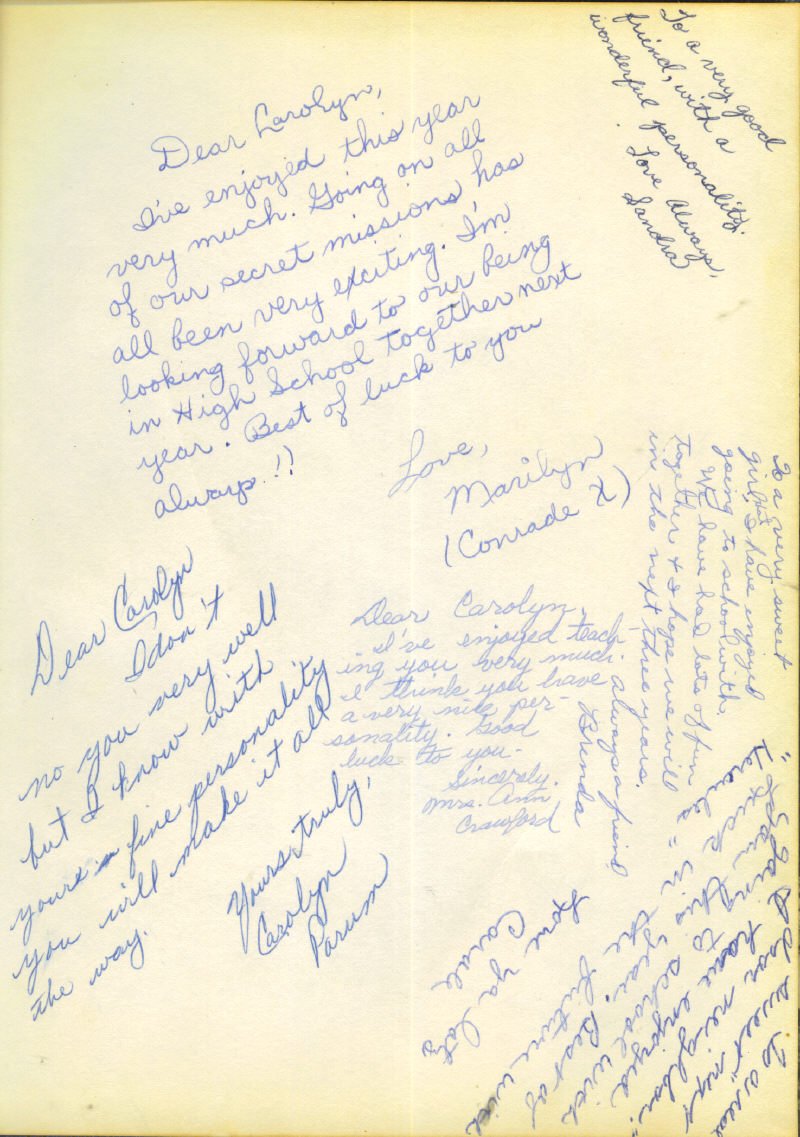 Dear Carolyn,
I've enjoyed this year
very much. Going on all
of our secret missions has
all been very exciting. I'm
looking forward to our being
in High School together next
year. Best of luck to you
always!!
Love,
Marilyn
(Conrade X)
To a very good
friend, with a
wonderful personality.
Love Always,
Sandra
To a very sweet
girl, I have enjoyed
going to school with,
We have had lots of fun
together & I hope we will
in the next three years.
Always a friend
Brenda
Dear Carolyn
I don't
no you very well
but I know with
yours fine personality
you will make it all
the way.
Yours truly,
Carolyn
Parum
Dear Carolyn,
I've enjoyed teach
ing you very much.
I think you have
a very nice per-
sonality. Good
luck to you.
Sincerely.
Mrs. Ann
Crawford
To a real
sweet "next
door neighbor."
I have enjoyed
going to school with
this year. Best of
luck in the future with
Hercules =
Love ya lots
Carole